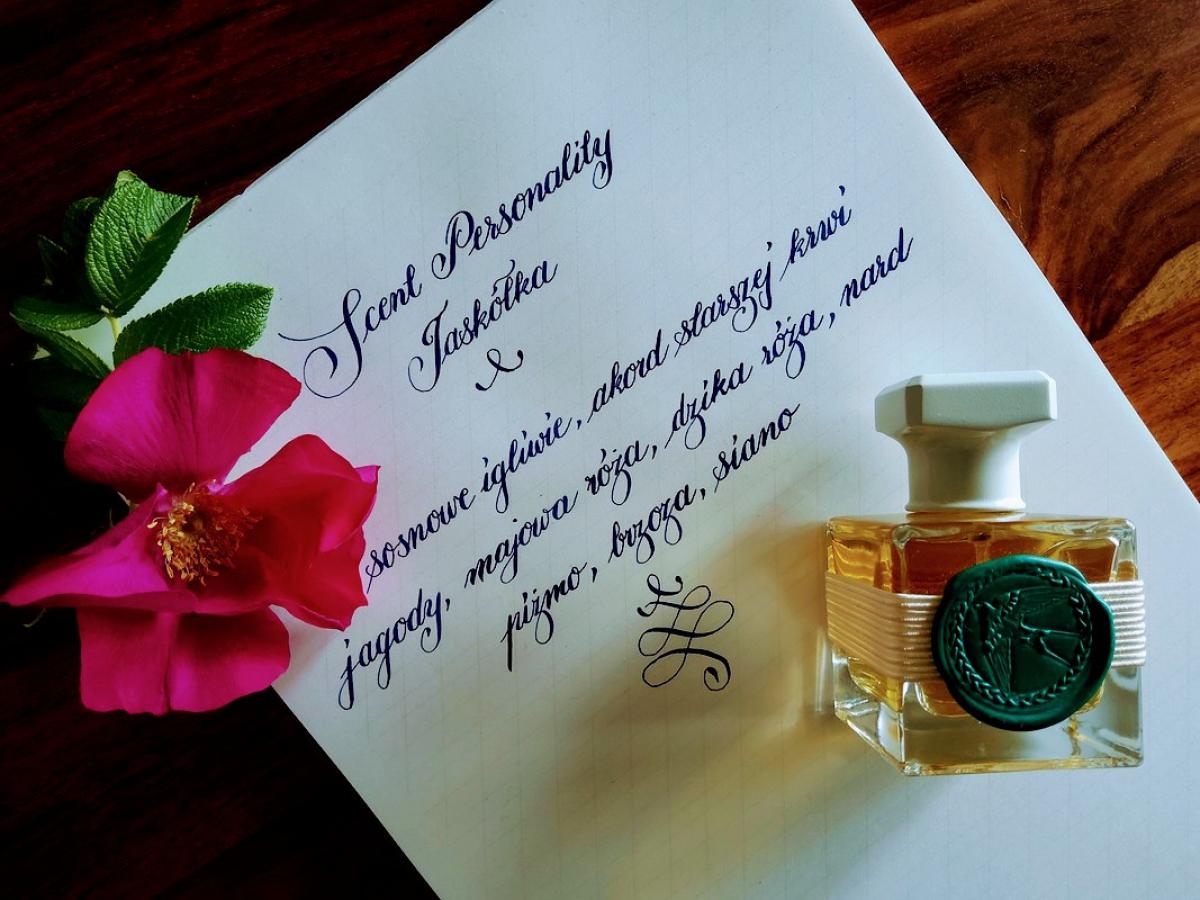 Scent Personality
Jaskółka
sosnowe igliwie, akord starszej krwi
jagody, majowa róża, dzika róża, nard
piżmo, brzoza, siano